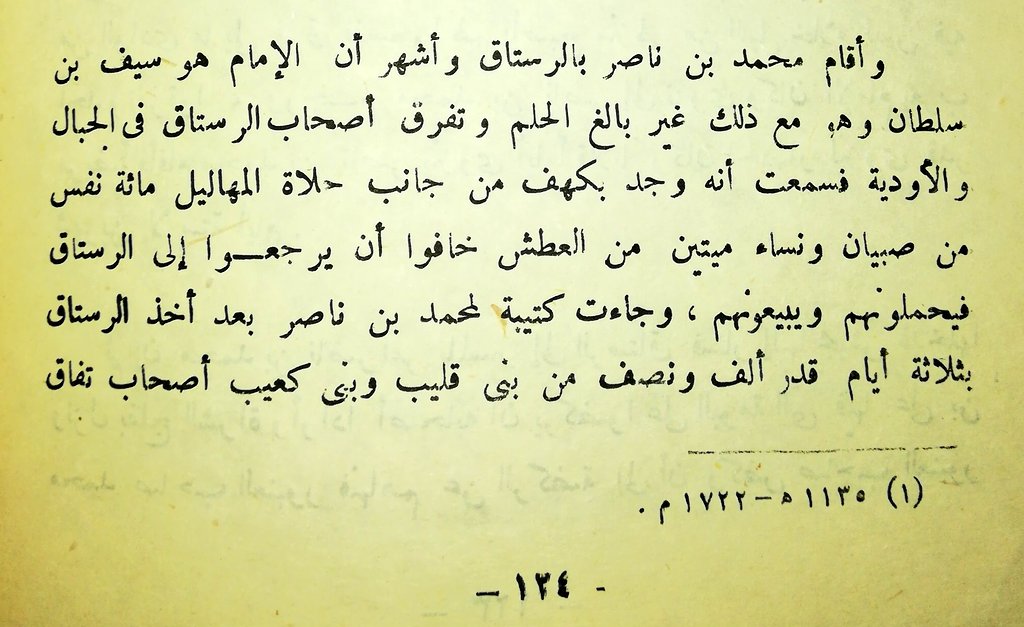 وأقام محمد بن ناصر بالرستاق وأشهر أن الإمام هو سيف بن
سلطان وهو مع ذلك غير بالغ الحلم وتفرق أصحاب الرستاق فى الجبال
والأودية فسمعت أنه وجد بكهف من جانب حلاة المهاليل مائة نفس
من صبيان ونساء ميتين من العطش خافوا أن يرجعــوا إلى الرستاق
فيحملونهم ويبيعونهم ، وجاءت كتيبة لمحمد بن ناصر بعد أخذ الرستاق
بثلاثة أيام قدر ألف ونصف من بنى قليب وبنى كعيب أصحاب تفاق
(١) ١١٣٥ ه – ١٧٢٢ م .
- ١٣٤ –